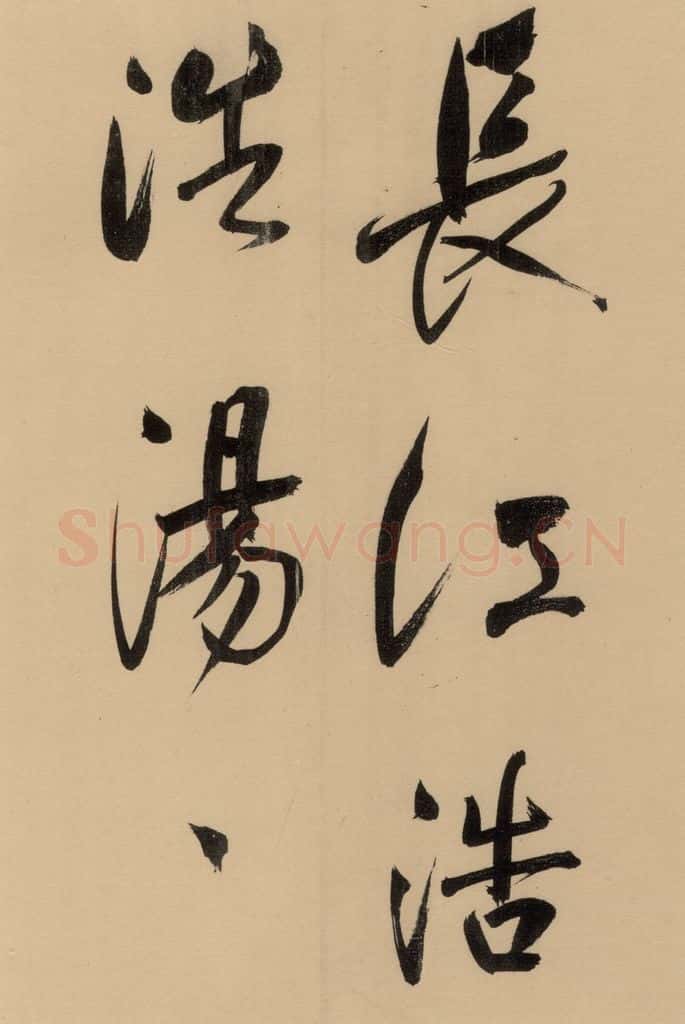 長江浩
浩湯、
Shufawang.CN